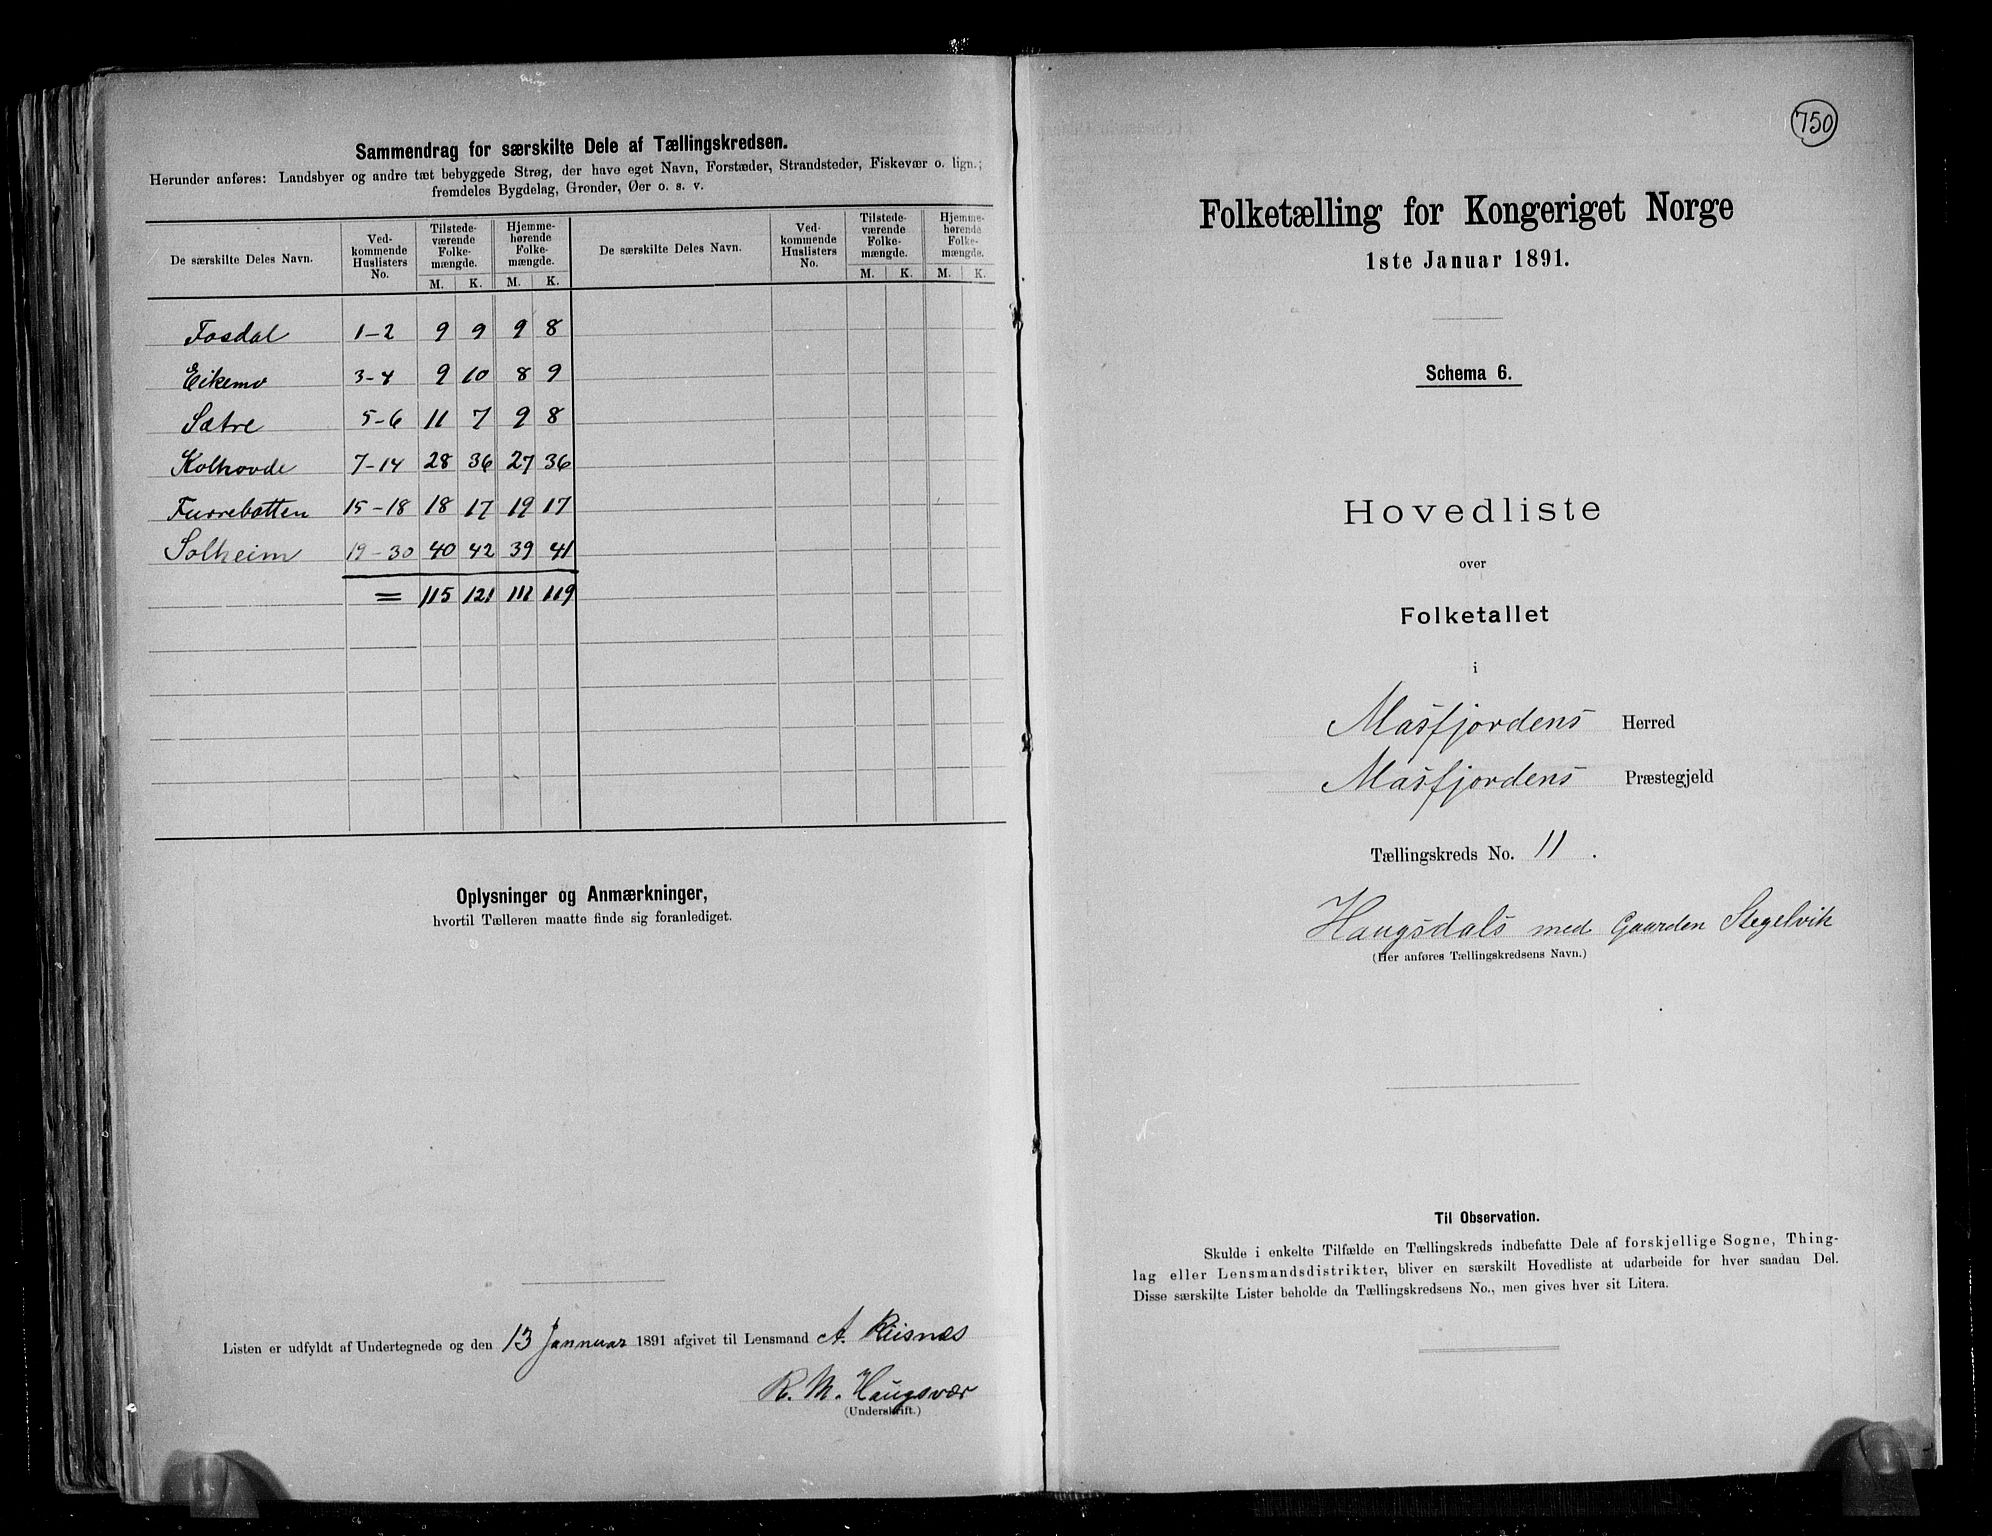 Sammendrag for særskilte Dele af Tællingskredsen.
Herunder anføres: Landsbyer og andre tæt bebyggede Strøg, der have eget Navn, Forstæder, Strandsteder, Fiskevær o. lign.;
fremdeles Bygdelag, Grender, Øer o. s. v.
De særskilte Deles Navn. Ved-kommende Huslisters No. Tilstede-værende Folke-mængde. Hjemme-hørende Folke-mængde. De særskilte Deles Navn. Ved-kommende Huslisters No. Tilstede-værende Folke-mængde. Hjemme-hørende Folke-mængde.
M. K. M. K. M. K. M. K.
Fosdal 1-2 9 9 9 8
Eikemo 3-4 9 10 8 9
Sætre 5-6 11 7 9 8
Kolhovde 7-14 28 36 27 36
Furrebotten 15-18 18 17 19 17
Solheim 19-30 40 42 39 41
= 115 121 111 119
Oplysninger og Anmærkninger,
hvortil Tælleren maatte finde sig foranlediget.
Listen er udfyldt af Undertegnede og den 13 Januar 1891 afgivet til Lensmand A. Reisnæs
R. M. Haugsvær
(Underskrift.)
750
Folketælling for Kongeriget Norge
1ste Januar 1891.
Schema 6.
Hovedliste
over
Folketallet
i
Masfjordens Herred
Masfjordens Præstegjeld
Tællingskreds No. 11.
Haugsdals med Gaarden Stegelvik
(Her anføres Tællingskredsens Navn.)
Til Observation.
Skulde i enkelte Tilfælde en Tællingskreds indbefatte Dele af forskjellige Sogne, Thing-
lag eller Lensmandsdistrikter, bliver en særskilt Hovedliste at udarbeide for hver saadan Del.
Disse særskilte Lister beholde da Tællingskredsens No., men gives hver sit Litera.